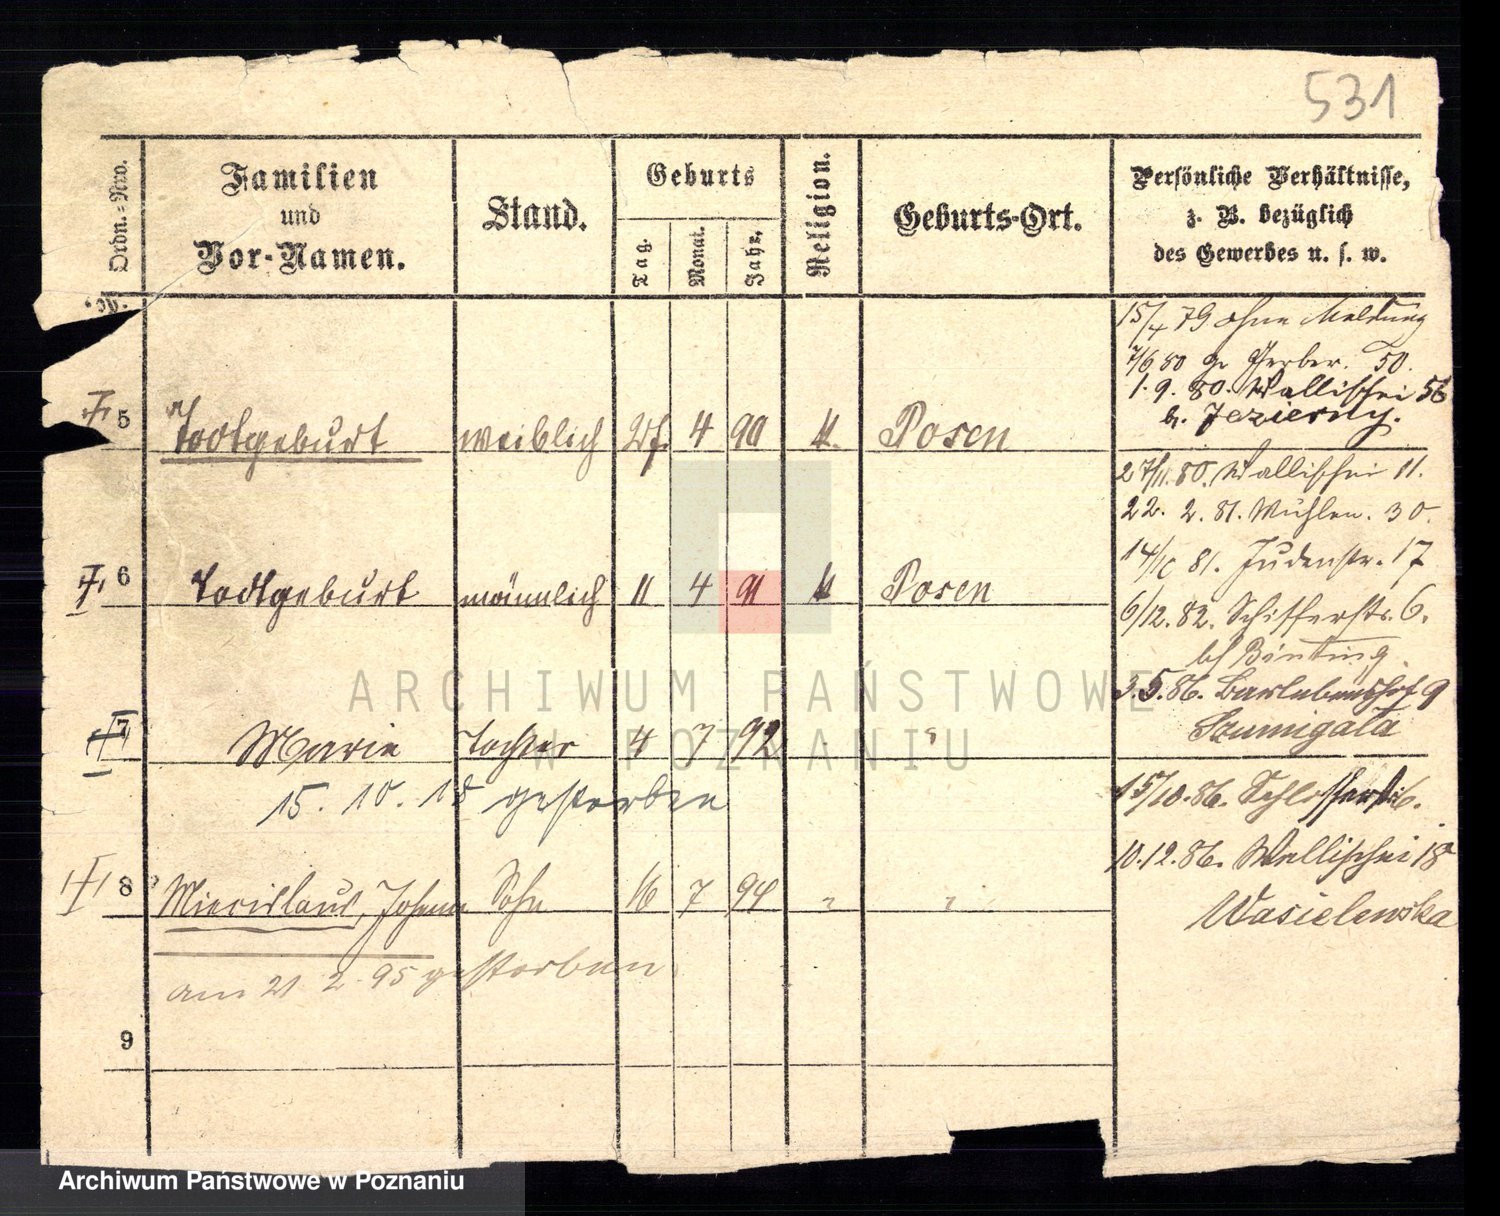 531
Ordn.-Nro.
Familien
und
Vor-Namen.
Stand.
Geburts
Tag.
Monat.
Jahr.
Religion.
Geburts-Ort.
Persönliche Verhältnisse,
z. B. bezüglich
des Gewerbes u. s. w.
15/4 79 ohne Meldung
7/6 80 Gerber. 50.
1. 9. 80. Wallischei 56
b. Jezierny.
5 Todtgeburt weiblich 4 90 k. Posen
27/11. 80. Wallischei 11.
22. 2. 81. Mühlen. 30.
14/10 81. Judenstr. 17
6 Todtgeburt männlich 11 4 91 k Posen
6/12. 82. Schifferstr. 6.
bf Bönting.
3. 5. 86. Berlebenshof 9
Szumigala
7 Marie Tochter 4 7 92 "
15. 10. 18 gestorben
15/10. 86. Schlosserstr. 6.
10. 12. 86. Wallischei 18
8 Miecislaus, Johann Sohn 16 7 94 " "
Wasielewska
am 21 2. 95 gestorben
9
ARCHIWUM PAŃSTWOWE
W POZNANIU
Archiwum Państwowe w Poznaniu